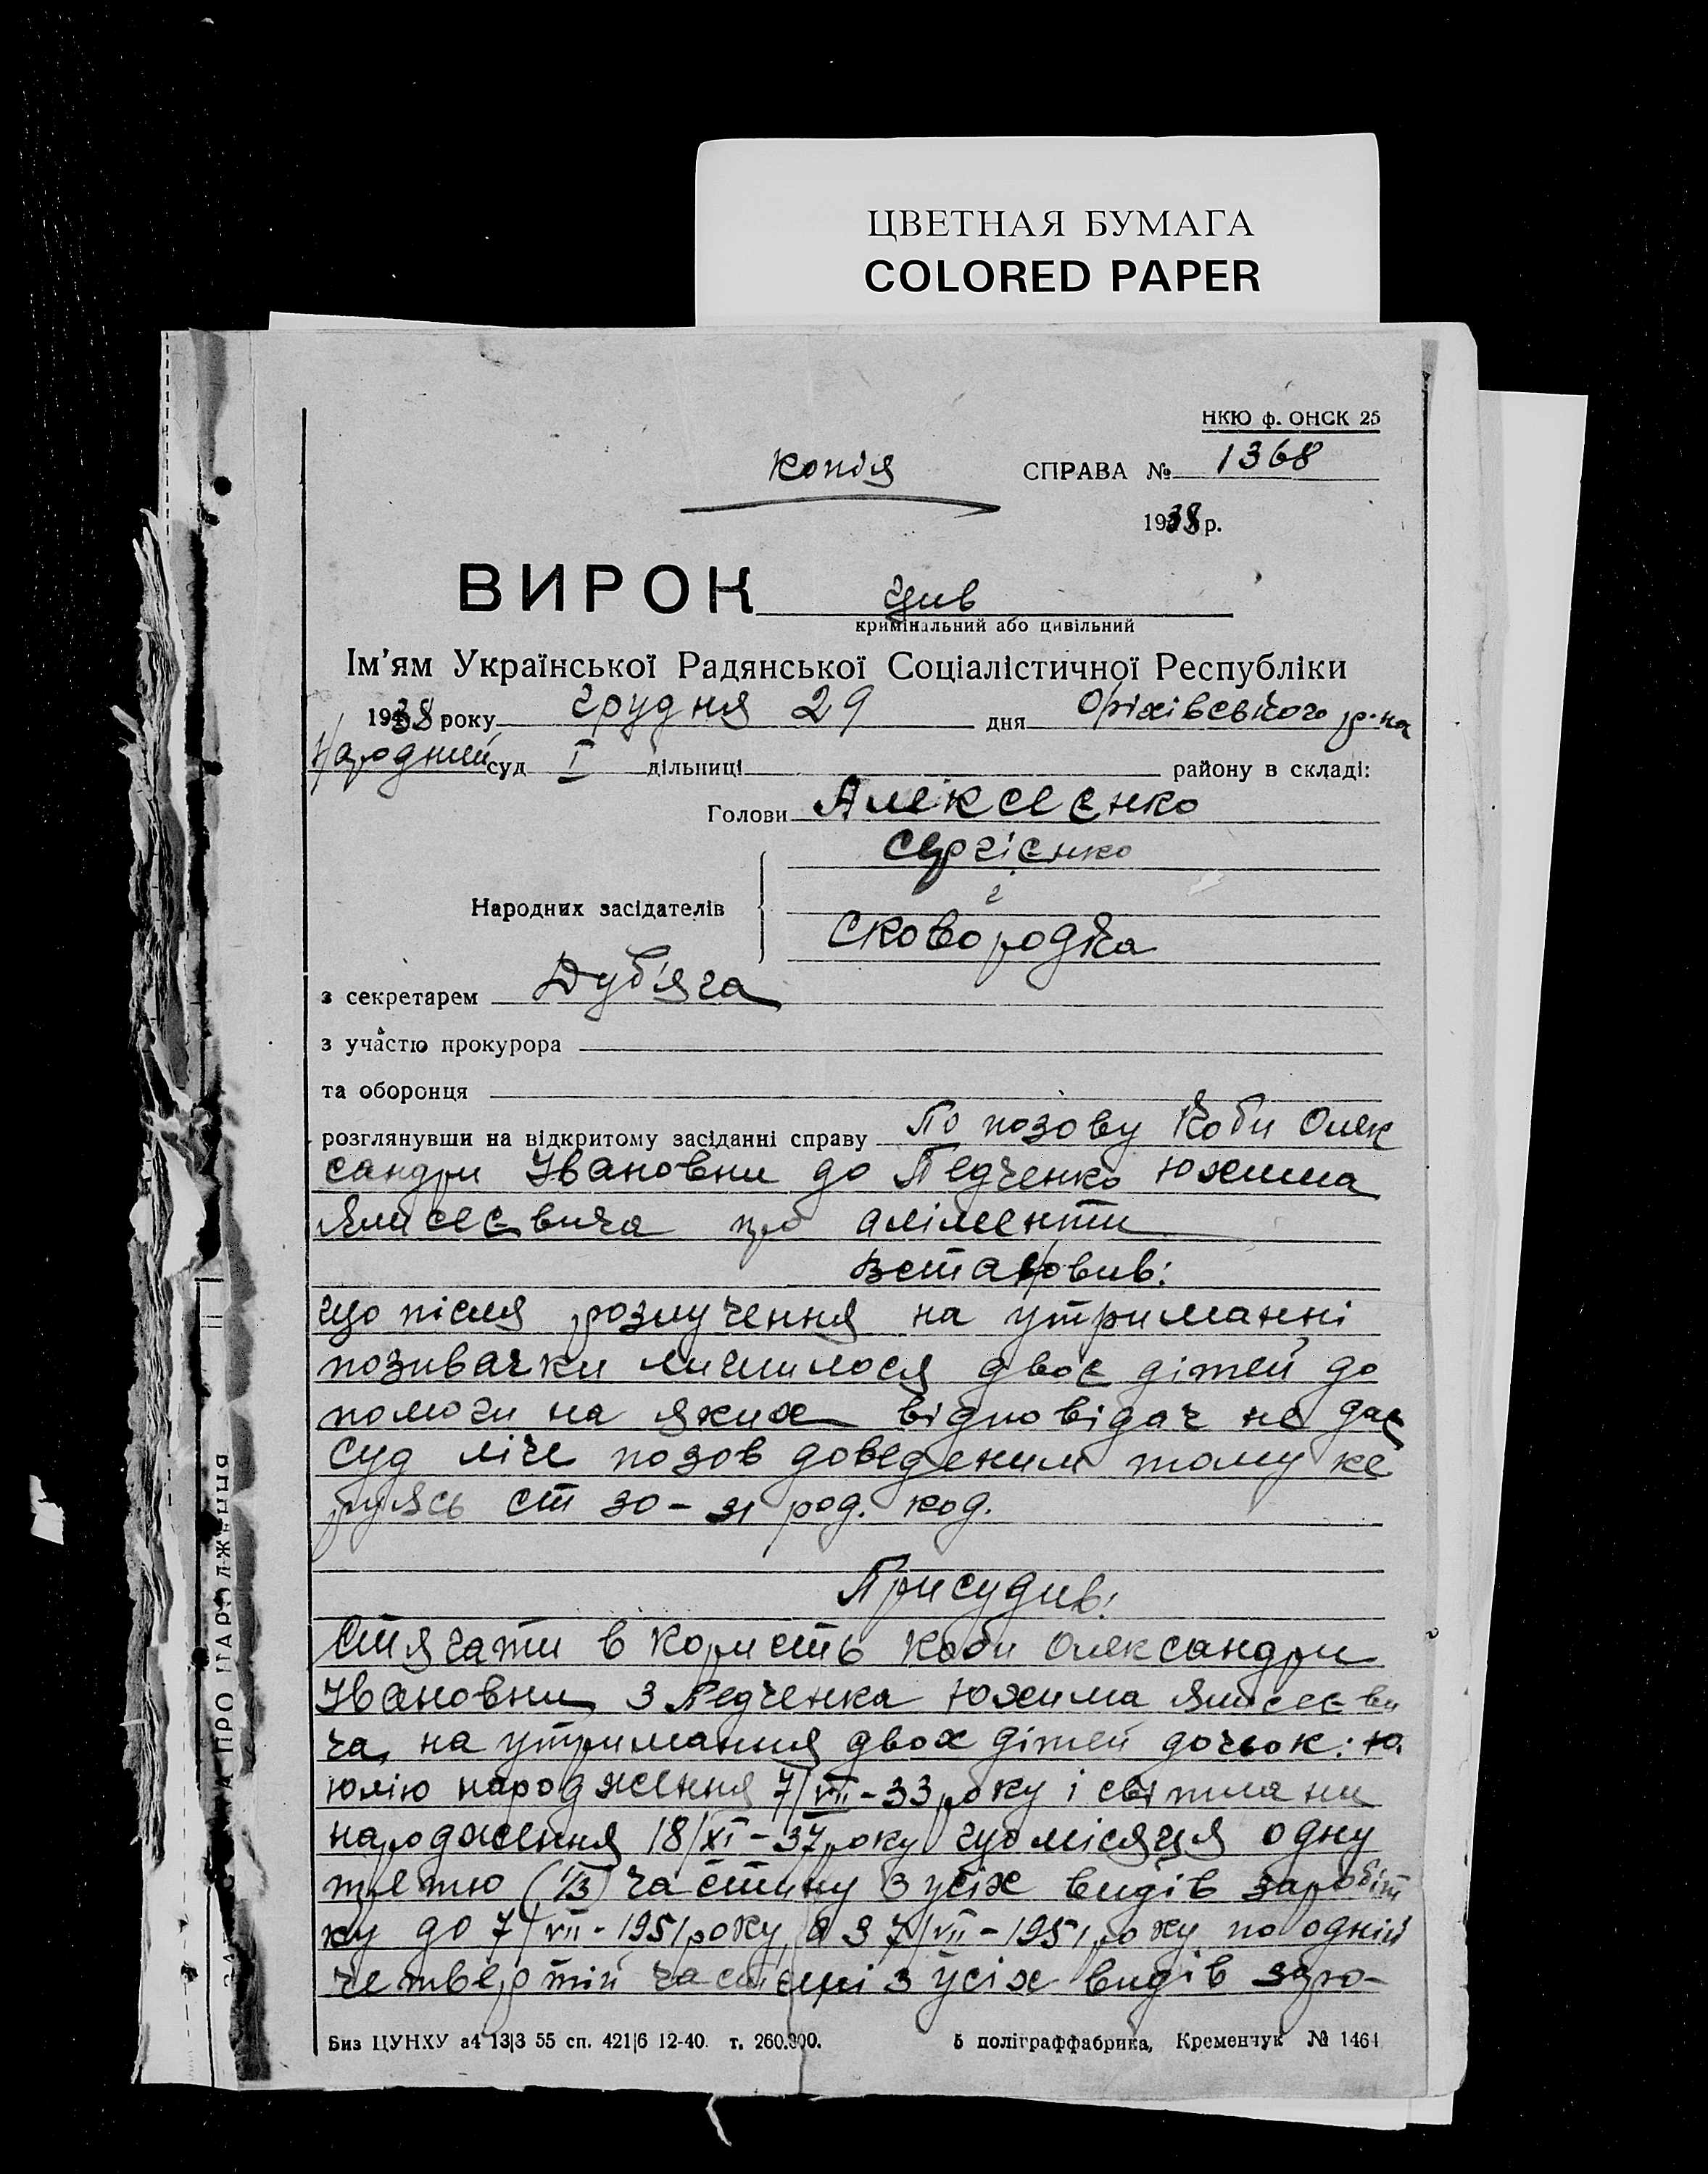 ЦВЕТНАЯ БУМАГА
COLORED PAPER
НКЮ ф. ОНСК 25
копія СПРАВА № 1368
1938 р.
ВИРОК цив
кримінальний або цивільний
Ім'ям Української Радянської Соціалістичної Республіки
1938 року грудня 29 дня Оріхівського р-на
Народний суд I дільниці района в складі:
Голови Алексєєнко
Сергієнко
і
Народних засідателів
Сковородка
з секретарем Дуб'яга
з участю прокурора
та оборонця
розглянувши на відкритому засіданні справу По позову Коби Олек
сандри Ивановни до Педченко Юхима
Ялисеєвича про аліменти
Встановив:
що після розлучення на утриманні
позивачки лишилося двоє дітей до
помоги на яких відповідач не дає
суд ліче позов доведеним тому ке
руясь ст 30-31 род. код.
Присудив:
Стягати в користь Коби Олександри
Ивановни з Педченка Юхима Ялисеєви
ча, на утримання двох дітей дочок: Ю.
Юлію народження 7/VII-33 року і світлани
народження 18/XI-37 року щомісяця одну
третю (1/3) частину з усіх видів заробіт
ку до 7/VII-1951 року, а з 7/VII-1951 року по одній
четвертій частині з усіх видів заро-
Биз ЦУНХУ а4 13|3 55 сп. 421|6 12-40. т. 260.000. 5 поліграффабрика, Кременчук № 1464